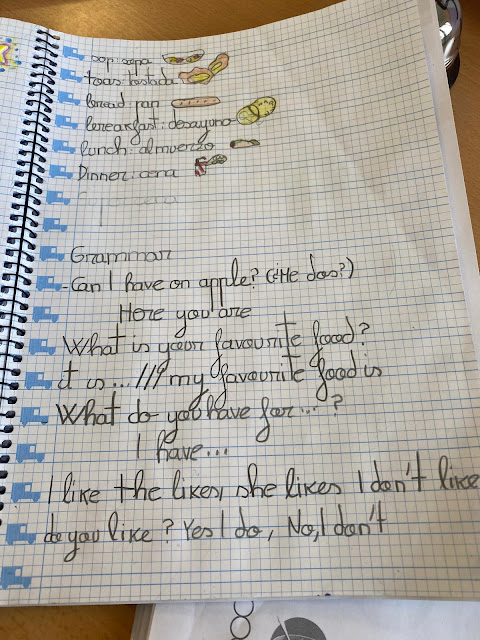 sop: sopa
toas: tostada
bread: pan
breakfast: desayuno
lunch: almuerzo
Dinner: cena
Grammar
-Can I have on apple? (¿Me das?)
Here you are
What is your favourite food?
it is... /// my favourite food is
What do you have for...?
I have...
I like the likes, she likes I don't like
do you like? Yes I do, No, I don't